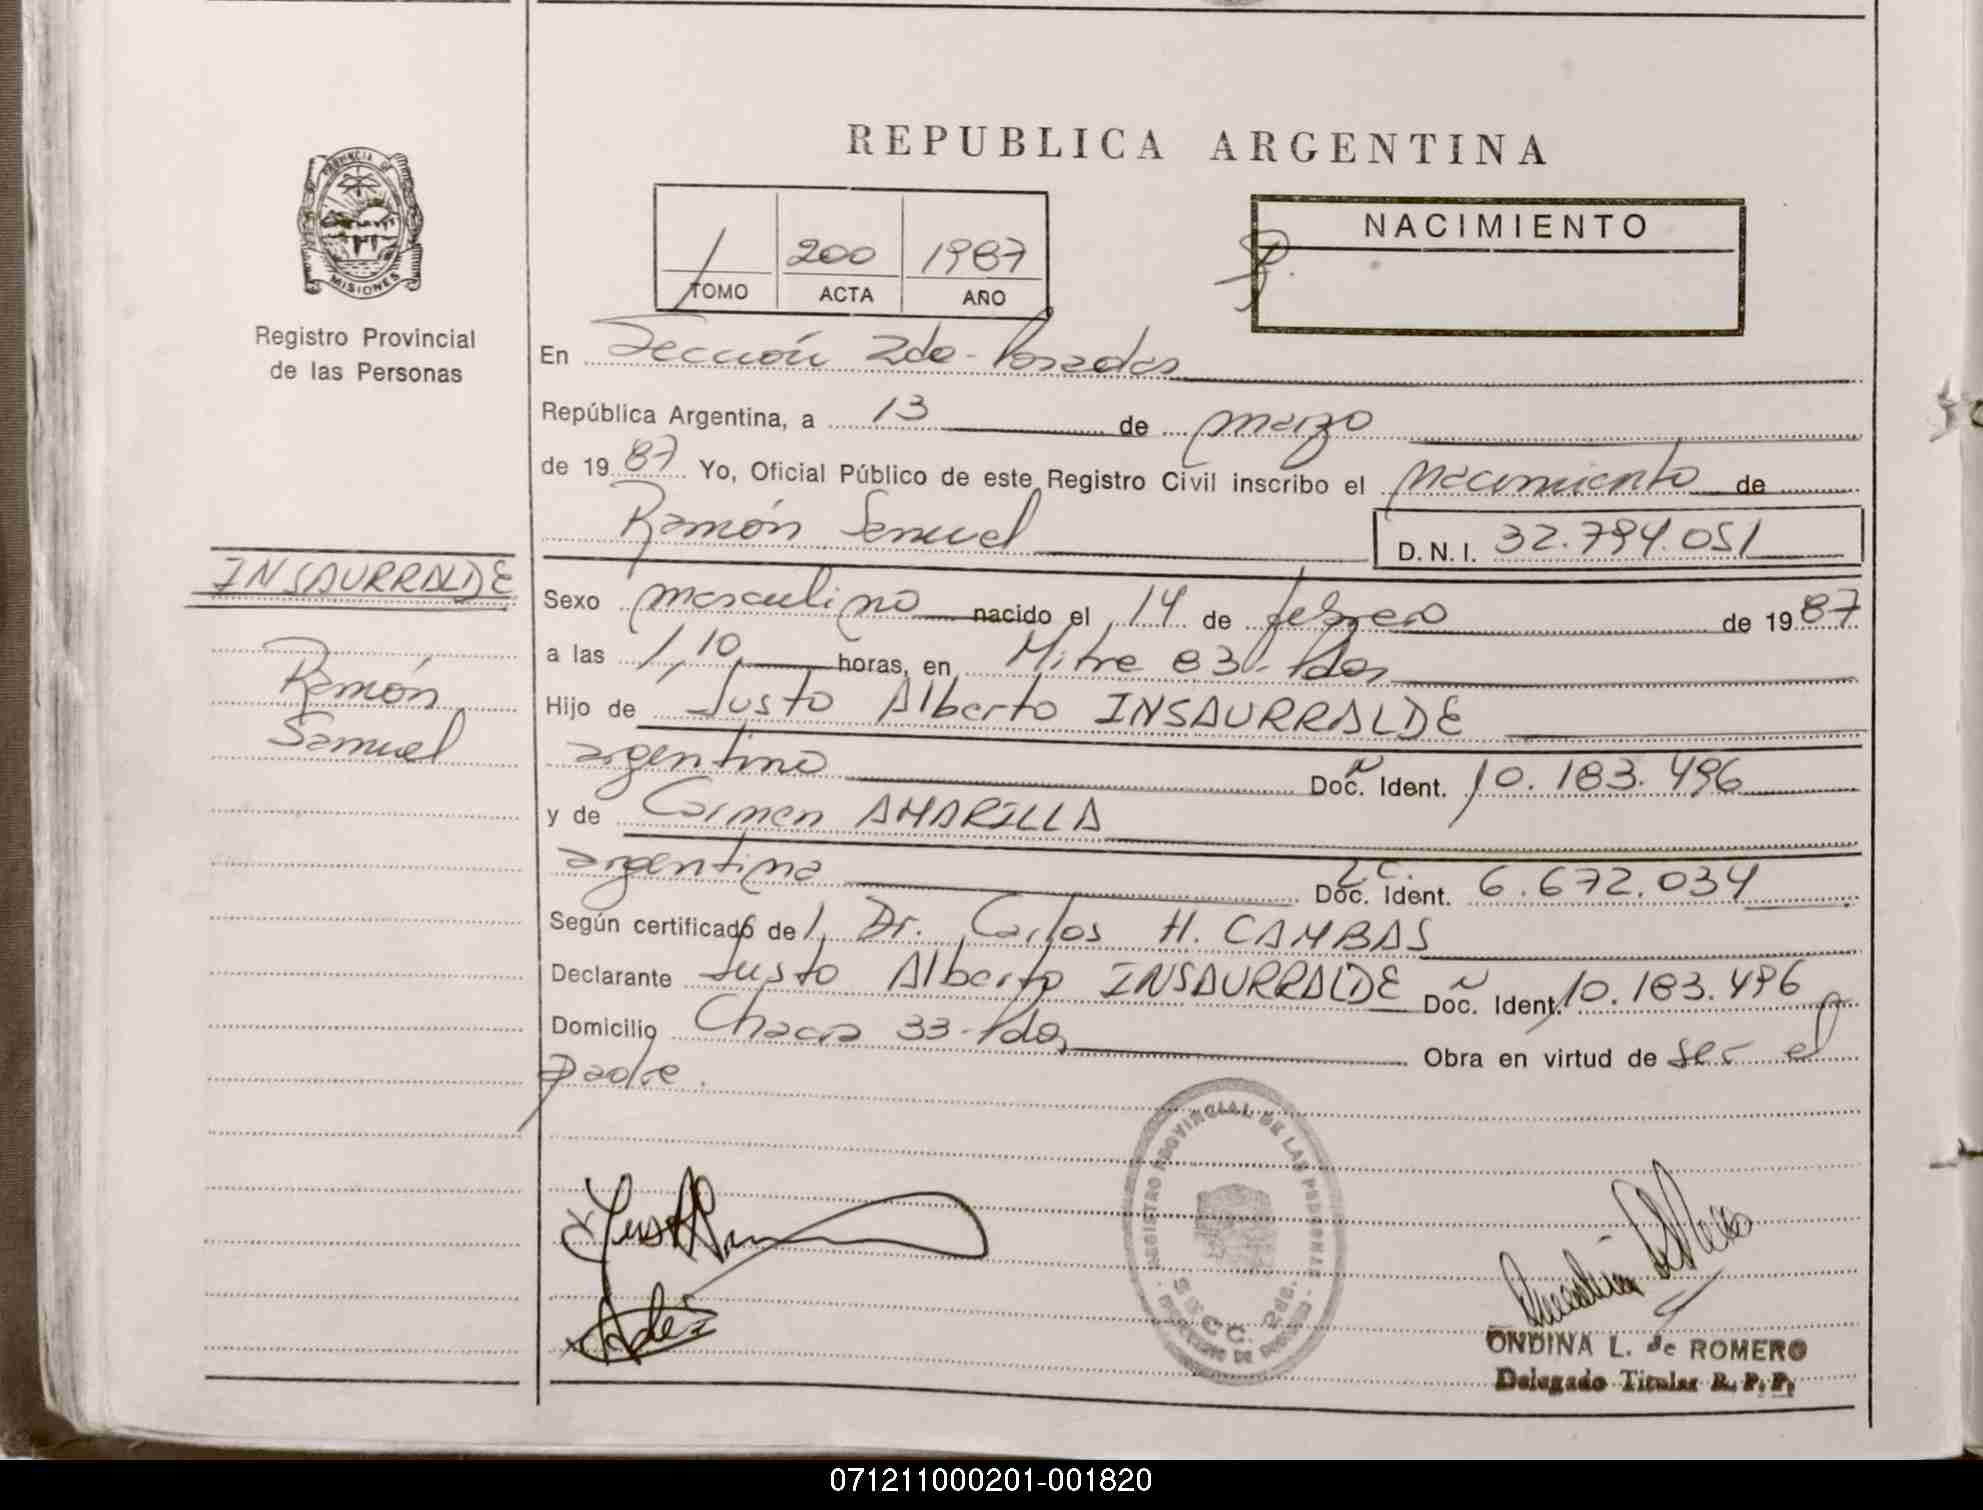 REPUBLICA ARGENTINA
PROVINCIA DE
MISIONES
Registro Provincial
de las Personas
1 200 1987
TOMO ACTA AÑO
NACIMIENTO
En Sección 2da - Posadas
República Argentina, a 13 de marzo
de 1987 Yo, Oficial Público de este Registro Civil inscribo el nacimiento de
Ramón Samuel D.N.I. 32.794.051
INSAURRALDE
Ramón
Samuel
Sexo masculino nacido el 14 de febrero de 1987
a las 1,10 horas, en Mitre 83 - Pdas
Hijo de Justo Alberto INSAURRALDE
argentino Doc. Ident. 10.183.496
y de Carmen AMARILLA
argentina L.C. Doc. Ident. 6.672.034
Según certificado de l Dr. Carlos H. CAMBAS
Declarante Justo Alberto INSAURRALDE Doc. Ident. 10.183.496
Domicilio Chacra 33 - Pdas Obra en virtud de ser el
padre.
REGISTRO PROVINCIAL DE LAS PERSONAS
SECC. 2da.
ONDINA L. de ROMERO
Delegado Titular R. P. P.
071211000201-001820